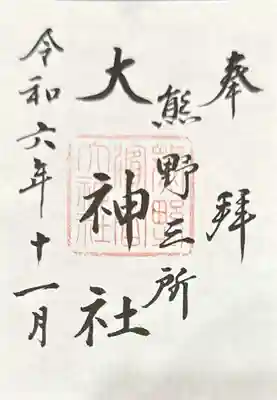 奉拝
熊野三所
大神社
令和六年十一月